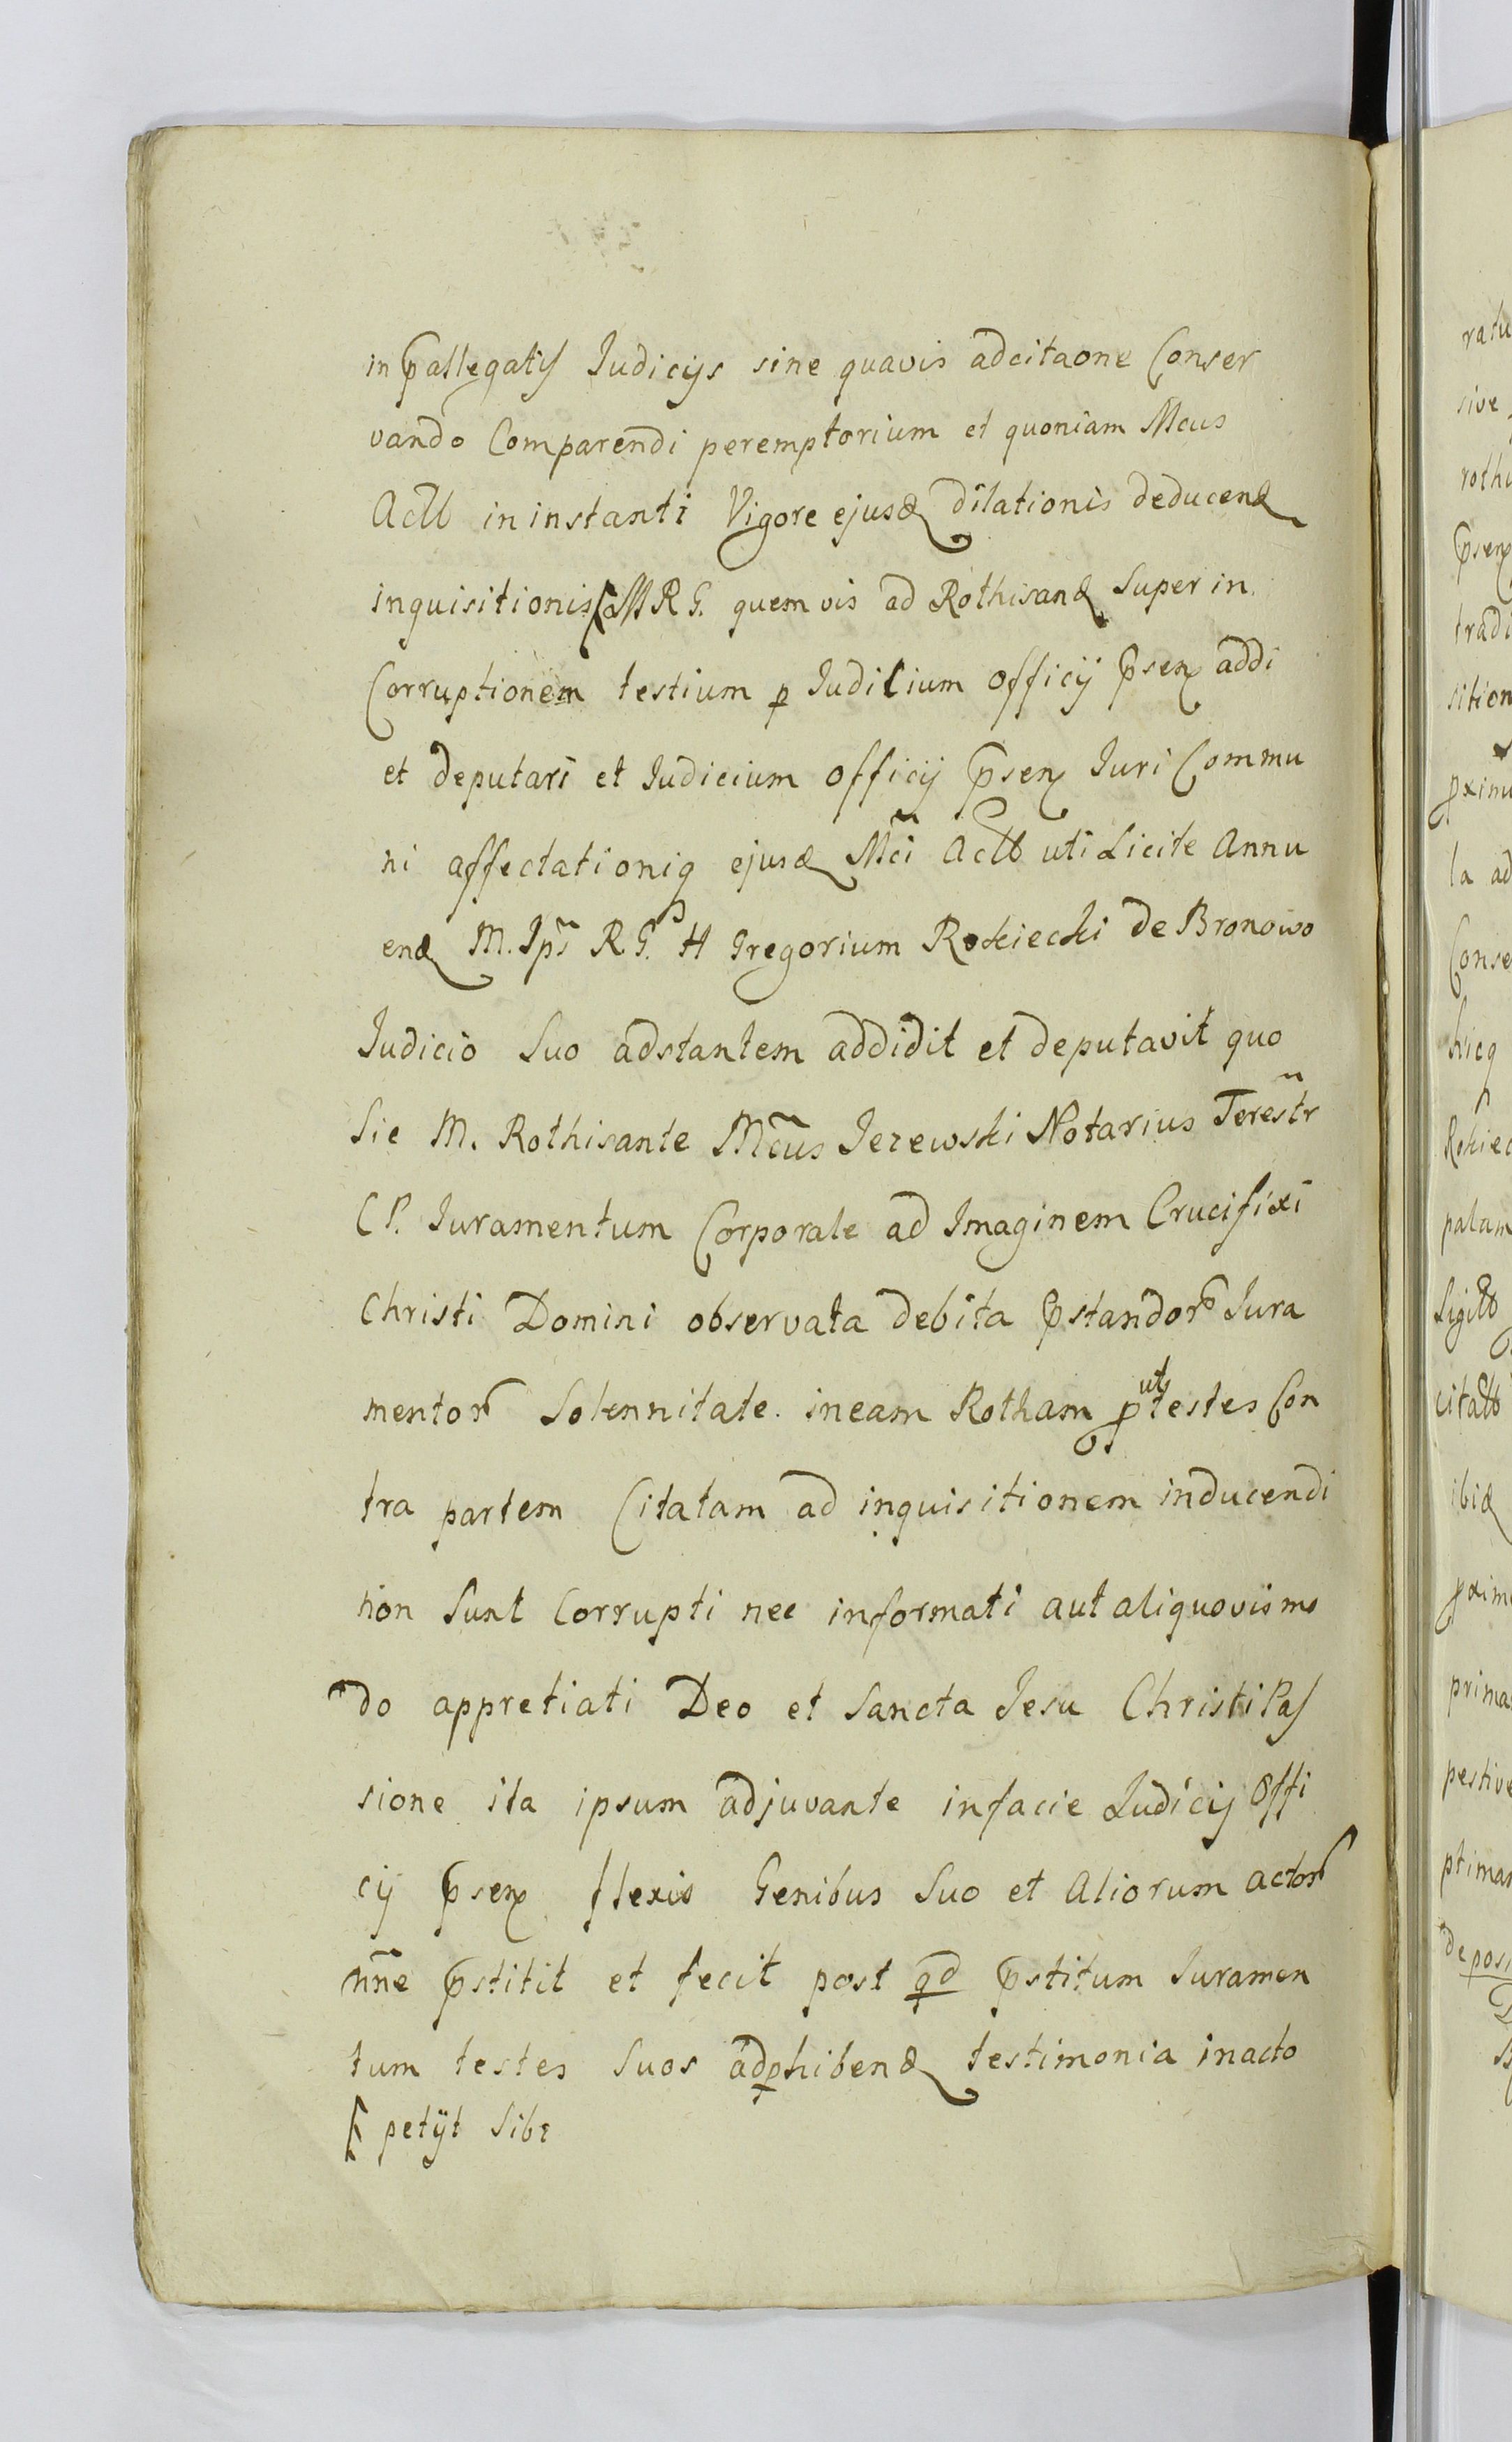 in p̄allegatis Judicijs sine quavis adcitaone Conser
vando Comparendi peremptorium et quoniam Mcus
Actb in instanti Vigore ejusd dilationis deducend
inquisitionis MRG. quemvis ad Rothisand Super in
Corruptionem testium p Judicium officij p̄sen addi
et deputari et Judicium officij p̄sen Juri Commu
ni affectationiq ejusd Mc̃i Actb uti Licite Annu
end M. Jps̃ R G. H Gregorium Rokiecki de Bronowo
Judicio Suo adstantem addidit et deputavit quo
Sic M. Rothisante Mc̃us Jezewski Notarius Terestr̃
CP. Juramentum Corporale ad Imaginem Crucifixi
Christi Domini observata debita p̄standor Jura
mentor Solennitate in eam Rotham put testes Con
tra partem Citatam ad inquisitionem inducendi
non Sunt Corrupti nec informati aut aliquovis mo
do appretiati Deo et Sancta Jesu Christi Pas
sione ita ipsum adjuvante in facie Judicij Offi
cij p̄sen flexis Genibus Suo et Aliorum actor
nñe p̄stitit et fecit post qd p̄stitum Juramen
tum testes Suos adphibend testimonia in acto
petijt Sibi
ratu
sive
roth
p̄sen
tradi
sition
pximu
la ad
Conse
kieq
Rokiec
palam
Sigilb
citatb
ibid
pxim
prima
pestive
ptimas
deposi